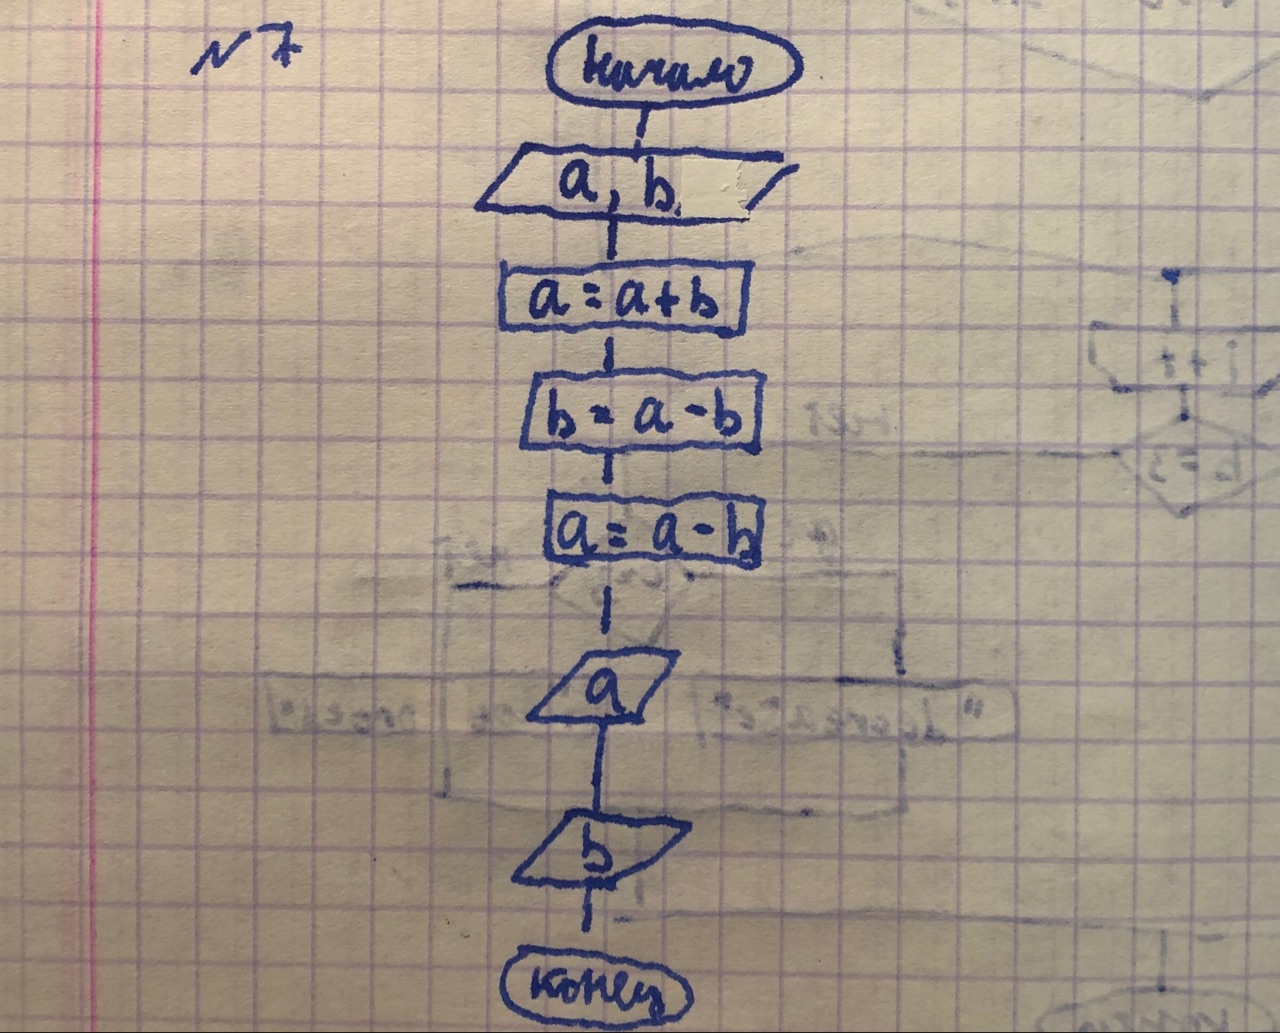 № 7
начало
a, b
a = a + b
b = a - b
a = a - b
a
b
конец